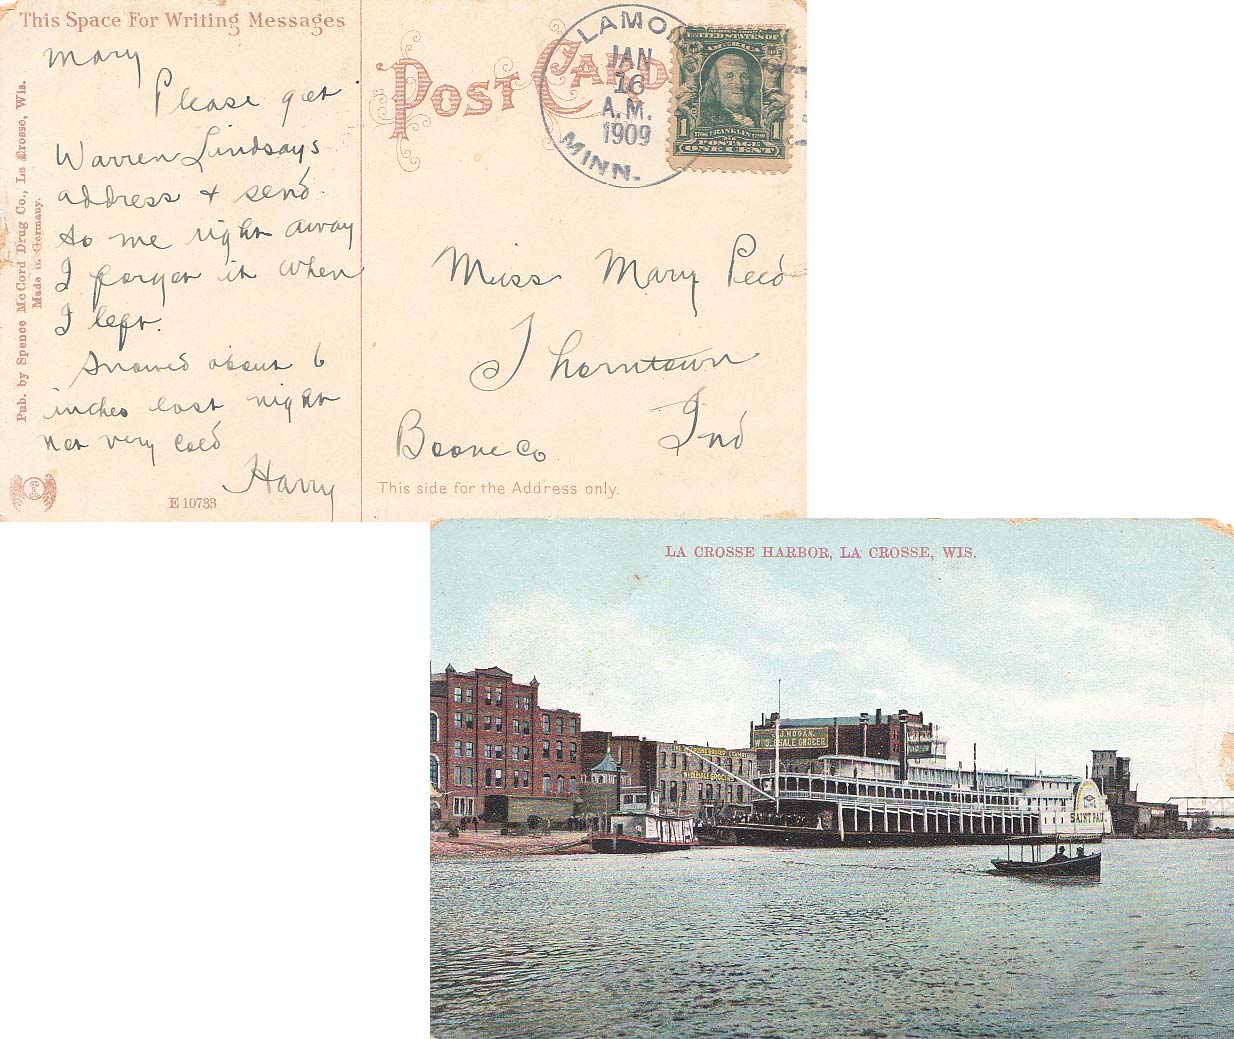 This Space For Writing Messages
Mary
Please get
Warren Lindsays
address & send
to me right away
I forgot it when
I left.
Snowed about 6
inches last night
not very cold
Harry
Pub. by Spence McCord Drug Co., La Crosse, Wis.
Made in Germany.
E 10733
POST CARD
LAMO
JAN
16
A.M.
1909
MINN.
SERIES 1902
UNITED STATES OF
AMERICA
1706 FRANKLIN 1790
1 POSTAGE 1
ONE CENT
Miss Mary Peed
Thorntown
Ind
Boone Co
This side for the Address only.
LA CROSSE HARBOR, LA CROSSE, WIS.
J. HOGAN.
WHOLESALE GROCER
WHOLESALE GROCERS
SAINT PAUL